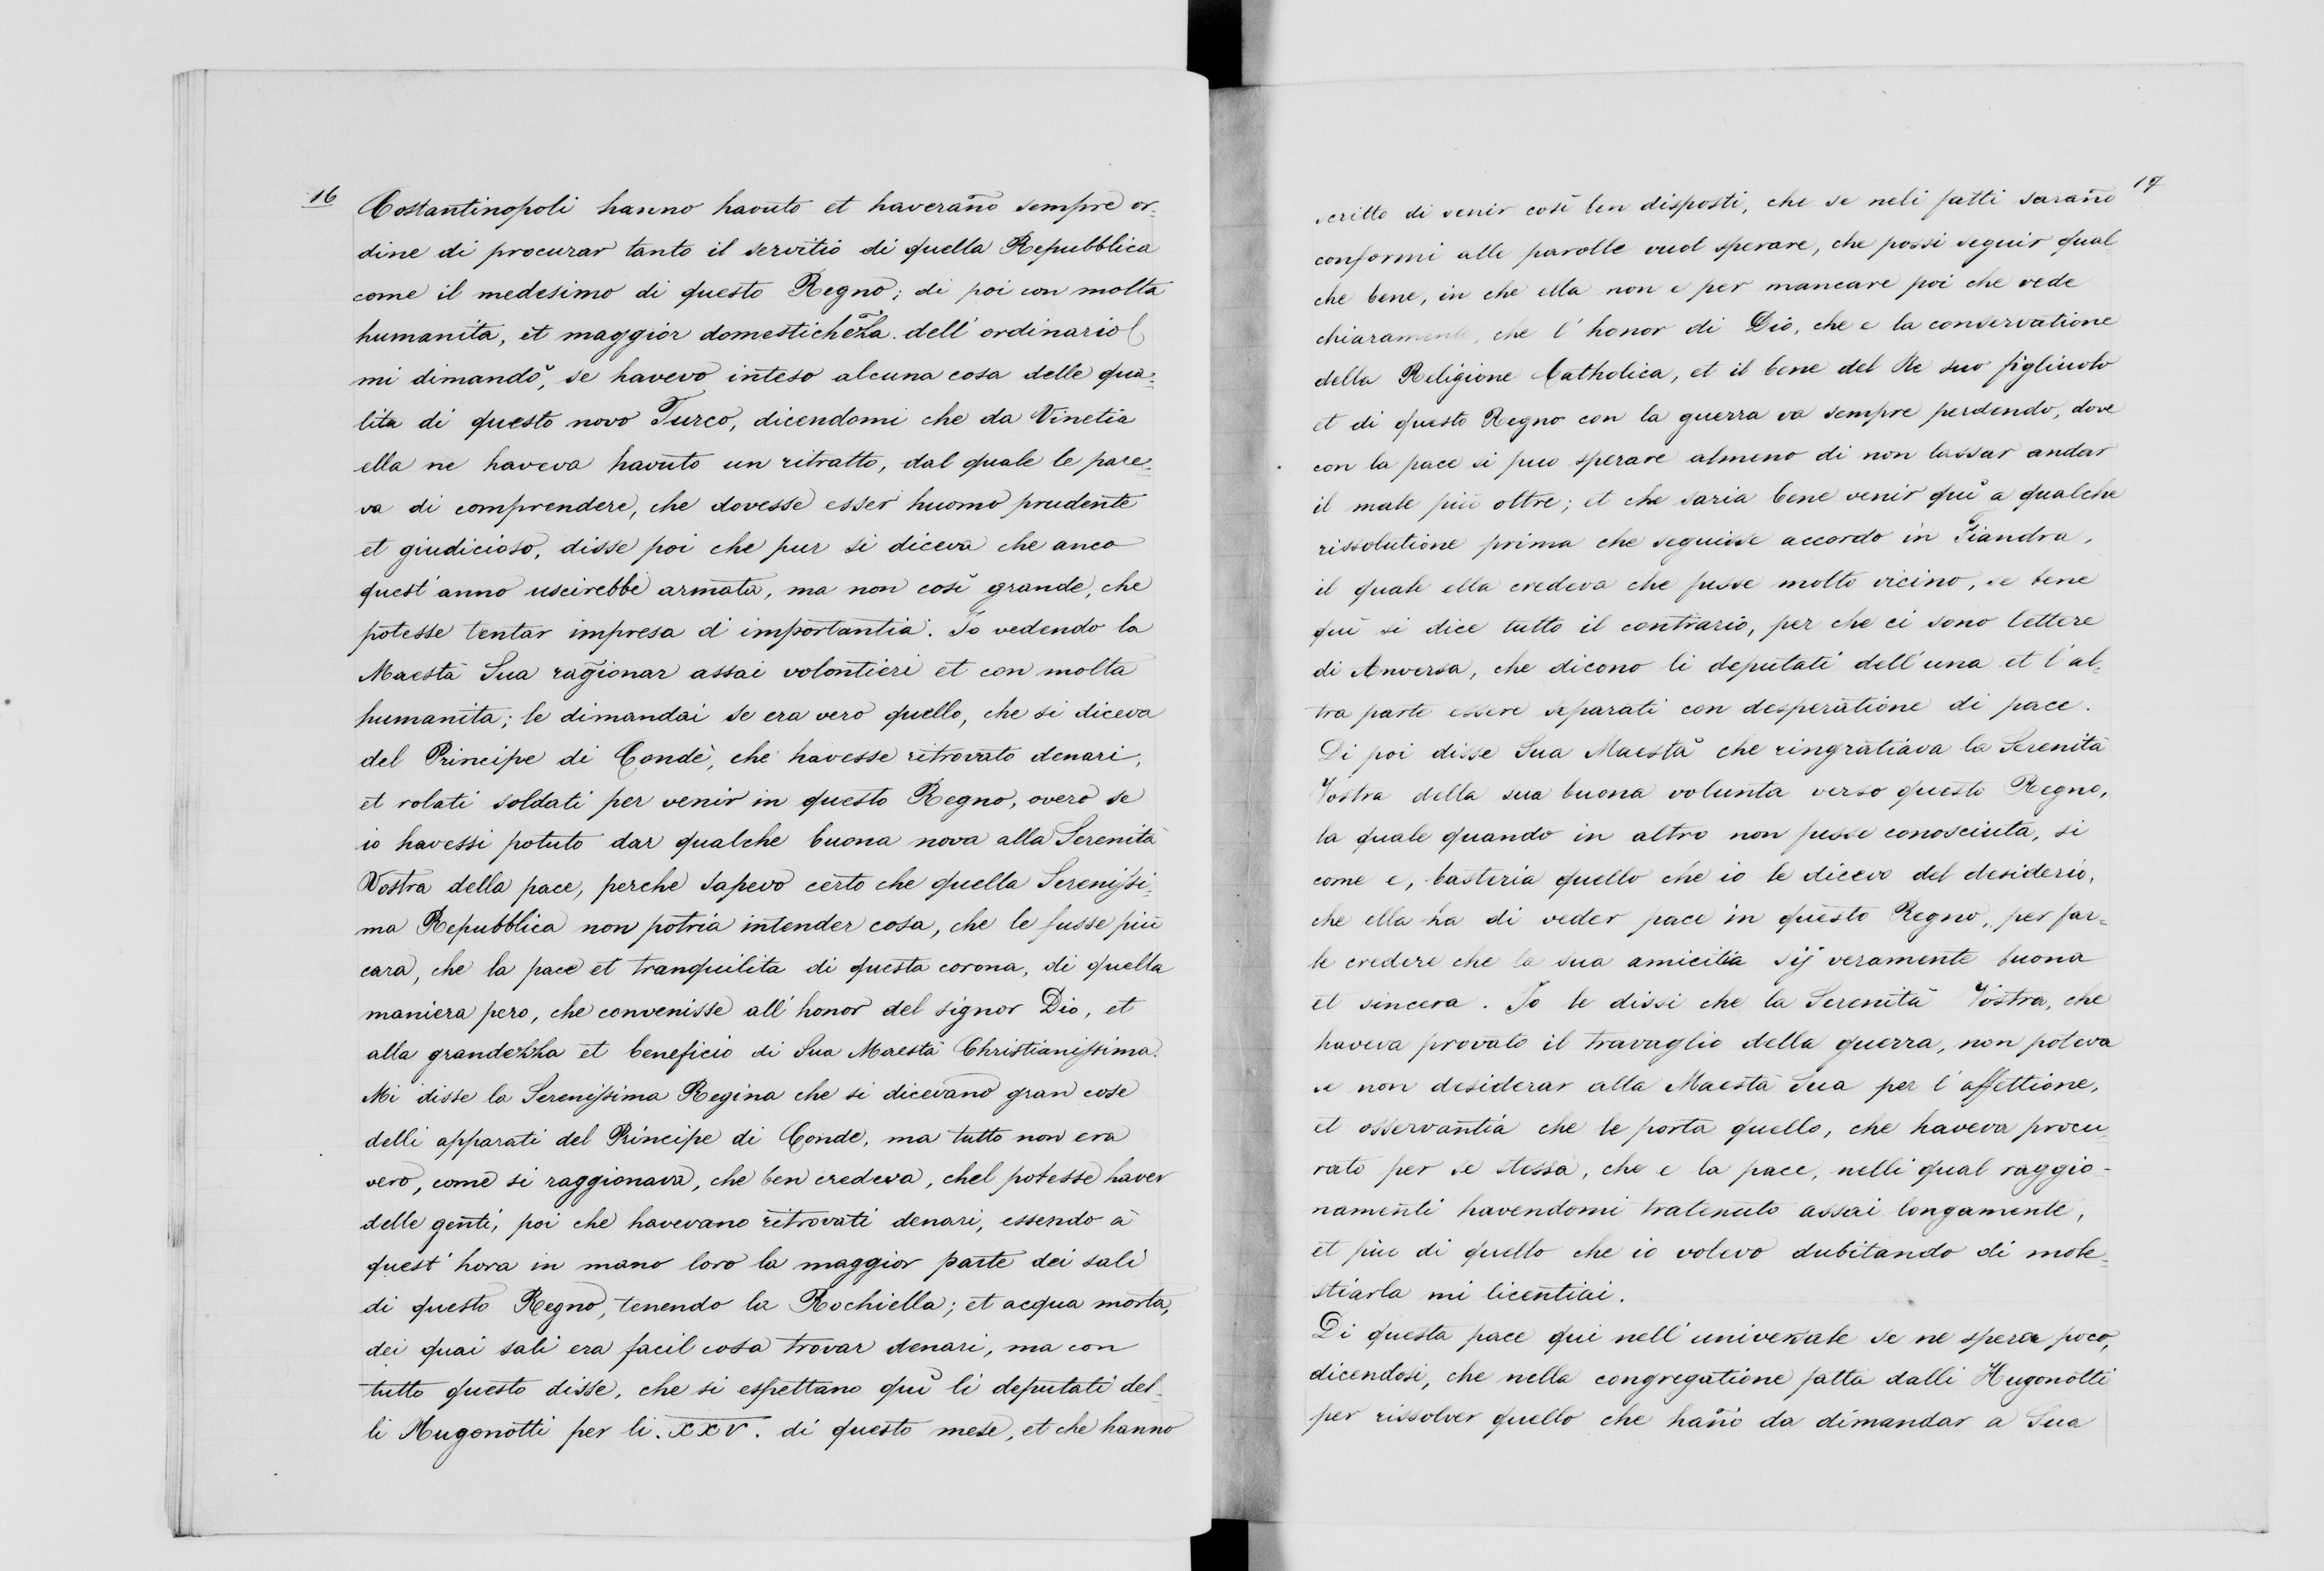 16
Costantinopoli hanno havuto et haverano sempre or-
dine di procurar tanto il servitio di quella Repubblica
come il medesimo di questo Regno; di poi con molta
humanita, et maggior domestichezza dell' ordinario
mi dimandò, se havevo inteso alcuna cosa delle qua-
lita di questo novo Turco, dicendomi che da Vinetia
ella ne haveva havuto un ritratto, dal quale le pare-
va di comprendere, che dovesse esser huomo prudente
et giudicioso, disse poi che pur si diceva che anco
quest' anno uscirebbe armata, ma non così grande, che
potesse tentar impresa d' importantia. Io vedendo la
Maestà Sua ragionar assai volontieri et con molta
humanita; le dimandai se era vero quello, che si diceva
del Principe di Condè, che havesse ritrovato denari,
et rolati soldati per venir in questo Regno, overo se
io havessi potuto dar qualche buona nova alla Serenità
Vostra della pace, perche sapevo certo che quella Serenissi-
ma Repubblica non potria intender cosa, che le fusse più
cara, che la pace et tranquilita di questa corona, di quella
maniera pero, che convenisse all' honor del signor Dio, et
alla grandezza et beneficio di Sua Maestà Christianissima.
Mi disse la Serenissima Regina che si dicevano gran cose
delli apparati del Principe di Conde, ma tutto non era
vero, come si raggionava, che ben credeva, chel potesse haver
delle genti, poi che havevano ritrovati denari, essendo à
quest' hora in mano loro la maggior parte dei sali
di questo Regno, tenendo la Rochiella; et acqua morta,
dei quai sali era facil cosa trovar denari, ma con
tutto questo disse, che si espettano quì li deputati del-
li Hugonotti per li. XXV. di questo mese, et che hanno
17
scritto di venir così ben disposti, che se neli fatti sarano
conformi alle parolle vuol sperare, che possi seguir qual
che bene, in che ella non e per mancare poi che vede
chiaramente, che l' honor di Dio, che e la conservatione
della Religione Catholica, et il bene del Re suo figliuolo
et di questo Regno con la guerra va sempre perdendo, dove
con la pace si puo sperare almeno di non lassar andar
il male più oltre; et che saria bene venir quì a qualche
rissolutione prima che seguisse accordo in Fiandra,
il quale ella credeva che fusse molto vicino, se bene
quì si dice tutto il contrario, per che ci sono lettere
di Anversa, che dicono li deputati dell' una et l' al-
tra parte essere separati con desperatione di pace.
Di poi disse Sua Maestà che ringratiava la Serenità
Vostra della sua buona volunta verso questo Regno,
la quale quando in altro non fusse conosciuta, si
come e, basteria quello che io le dicevo del desiderio,
che ella ha di veder pace in questo Regno, per far-
le credere che la sua amicitia sij veramente buona
et sincera. Io le dissi che la Serenità Vostra, che
haveva provato il travaglio della guerra, non poteva
se non desiderar alla Maestà Sua per l' affettione,
et osservantia che le porta quello, che haveva procu-
rato per se stessa, che e la pace, nelli qual raggio-
namenti havendomi tratenuto assai longamente,
et piu di quello che io volevo dubitando di mole-
stiarla mi licentiai.
Di questa pace qui nell' universale se ne spera poco,
dicendosi, che nella congregatione fatta dalli Hugonotti
per rissolver quello che hano da dimandar a Sua